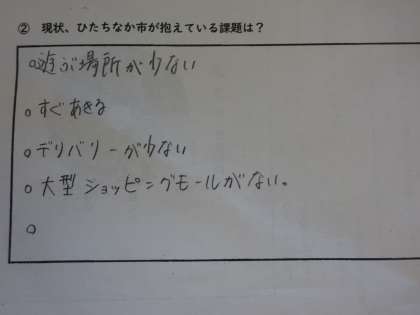 ② 現状、ひたちなか市が抱えている課題は？
○遊ぶ場所が少ない
○すぐあきる
○デリバリーが少ない
○大型ショッピングモールがない。
○